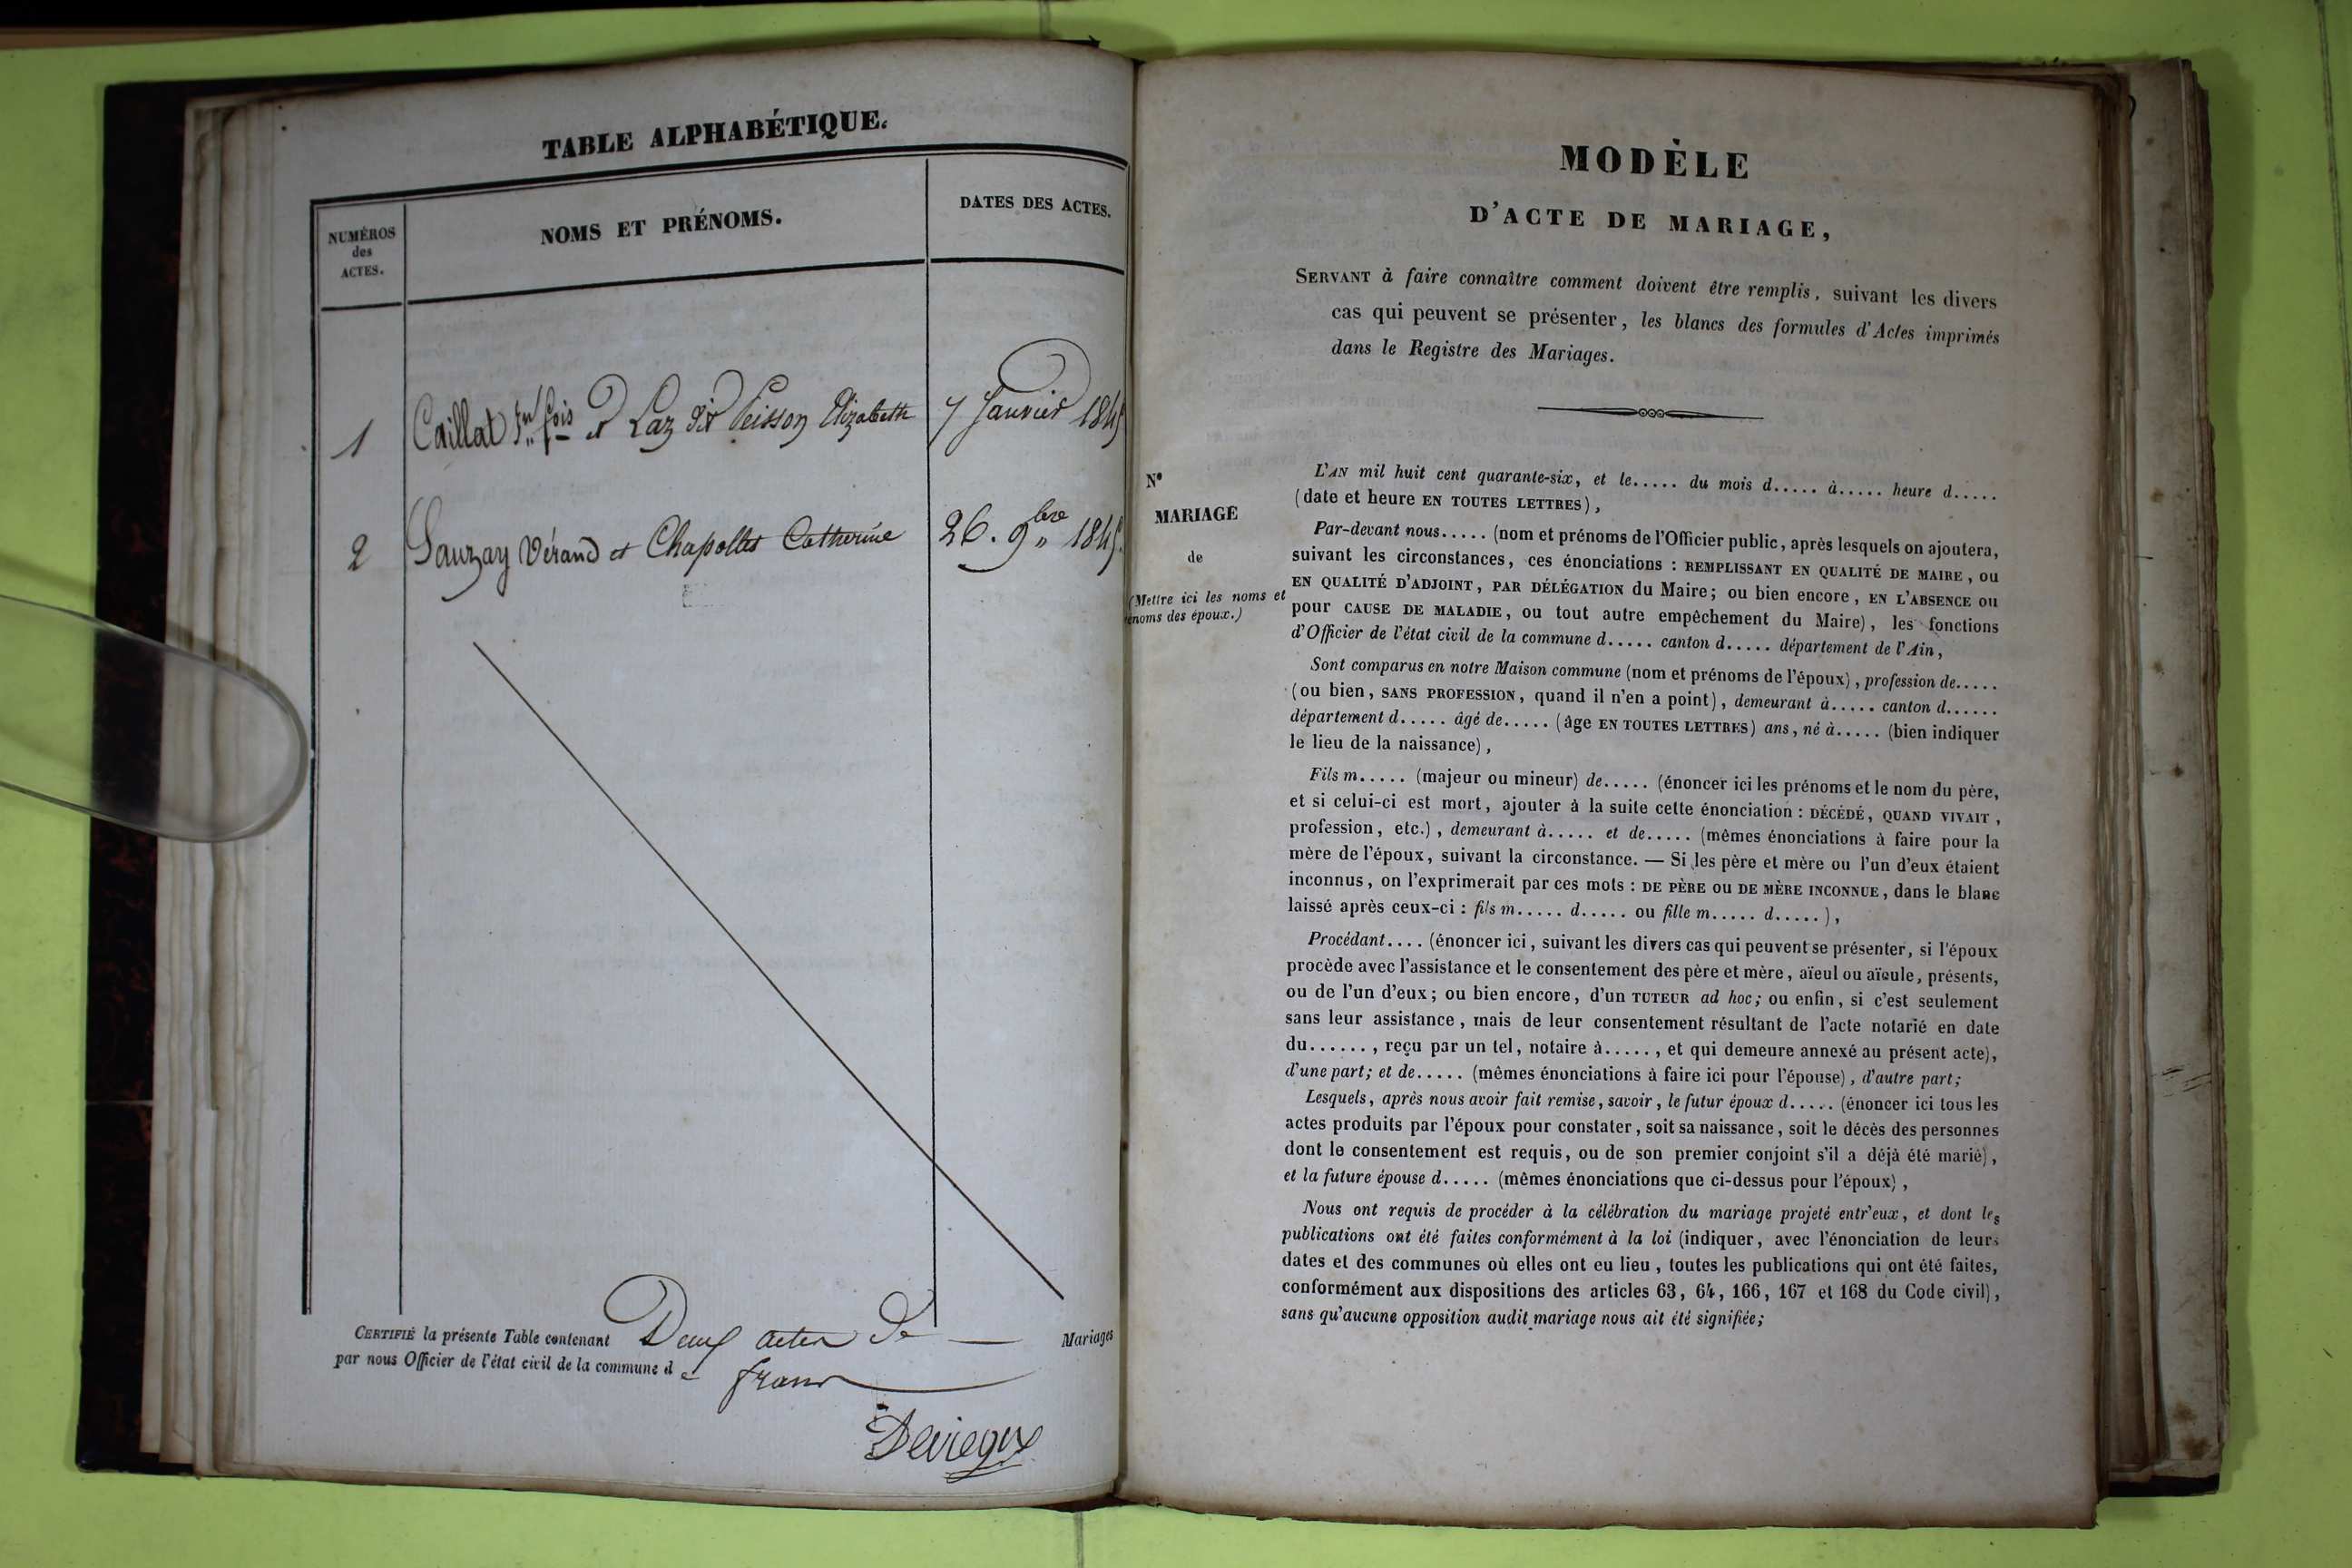 TABLE ALPHABÉTIQUE.
NUMÉROS
des
ACTES.
NOMS ET PRÉNOMS.
DATES DES ACTES.
1 Caillat Jn fois et Laz dit Peisson Elizabeth 7 Janvier 1845
2 Sauzay Vérand et Chapolles Catherine 26. 9bre 1845
CERTIFIÉ la présente Table contenant Deux actes de Mariages
par nous Officier de l'état civil de la commune de frans
MODÈLE
D'ACTE DE MARIAGE,
SERVANT à faire connaître comment doivent être remplis, suivant les divers
cas qui peuvent se présenter, les blancs des formules d'Actes imprimés
dans le Registre des Mariages.
N°
MARIAGE
de
(Mettre ici les noms et
énoms des époux.)
L'AN mil huit cent quarante-six, et le..... du mois d..... à..... heure d.....
(date et heure EN TOUTES LETTRES),
Par-devant nous..... (nom et prénoms de l'Officier public, après lesquels on ajoutera,
suivant les circonstances, ces énonciations : REMPLISSANT EN QUALITÉ DE MAIRE, ou
EN QUALITÉ D'ADJOINT, PAR DÉLÉGATION du Maire; ou bien encore, EN L'ABSENCE ou
pour CAUSE DE MALADIE, ou tout autre empêchement du Maire), les fonctions
d'Officier de l'état civil de la commune d..... canton d..... département de l'Ain,
Sont comparus en notre Maison commune (nom et prénoms de l'époux), profession de.....
(ou bien, SANS PROFESSION, quand il n'en a point), demeurant à..... canton d......
département d..... âgé de..... (âge EN TOUTES LETTRES) ans, né à..... (bien indiquer
le lieu de la naissance),
Fils m..... (majeur ou mineur) de..... (énoncer ici les prénoms et le nom du père,
et si celui-ci est mort, ajouter à la suite cette énonciation : DÉCÉDÉ, QUAND VIVAIT,
profession, etc.), demeurant à..... et de..... (mêmes énonciations à faire pour la
mère de l'époux, suivant la circonstance. — Si les père et mère ou l'un d'eux étaient
inconnus, on l'exprimerait par ces mots : DE PÈRE ou DE MÈRE INCONNUE, dans le blanc
laissé après ceux-ci : fils m..... d..... ou fille m..... d.....),
Procédant.... (énoncer ici, suivant les divers cas qui peuvent se présenter, si l'époux
procède avec l'assistance et le consentement des père et mère, aïeul ou aïeule, présents,
ou de l'un d'eux; ou bien encore, d'un TUTEUR ad hoc; ou enfin, si c'est seulement
sans leur assistance, mais de leur consentement résultant de l'acte notarié en date
du......, reçu par un tel, notaire à....., et qui demeure annexé au présent acte),
d'une part; et de..... (mêmes énonciations à faire ici pour l'épouse), d'autre part;
Lesquels, après nous avoir fait remise, savoir, le futur époux d..... (énoncer ici tous les
actes produits par l'époux pour constater, soit sa naissance, soit le décès des personnes
dont le consentement est requis, ou de son premier conjoint s'il a déjà été marié),
et la future épouse d..... (mêmes énonciations que ci-dessus pour l'époux),
Nous ont requis de procéder à la célébration du mariage projeté entr'eux, et dont les
publications ont été faites conformément à la loi (indiquer, avec l'énonciation de leurs
dates et des communes où elles ont eu lieu, toutes les publications qui ont été faites,
conformément aux dispositions des articles 63, 64, 166, 167 et 168 du Code civil),
sans qu'aucune opposition audit mariage nous ait été signifiée;